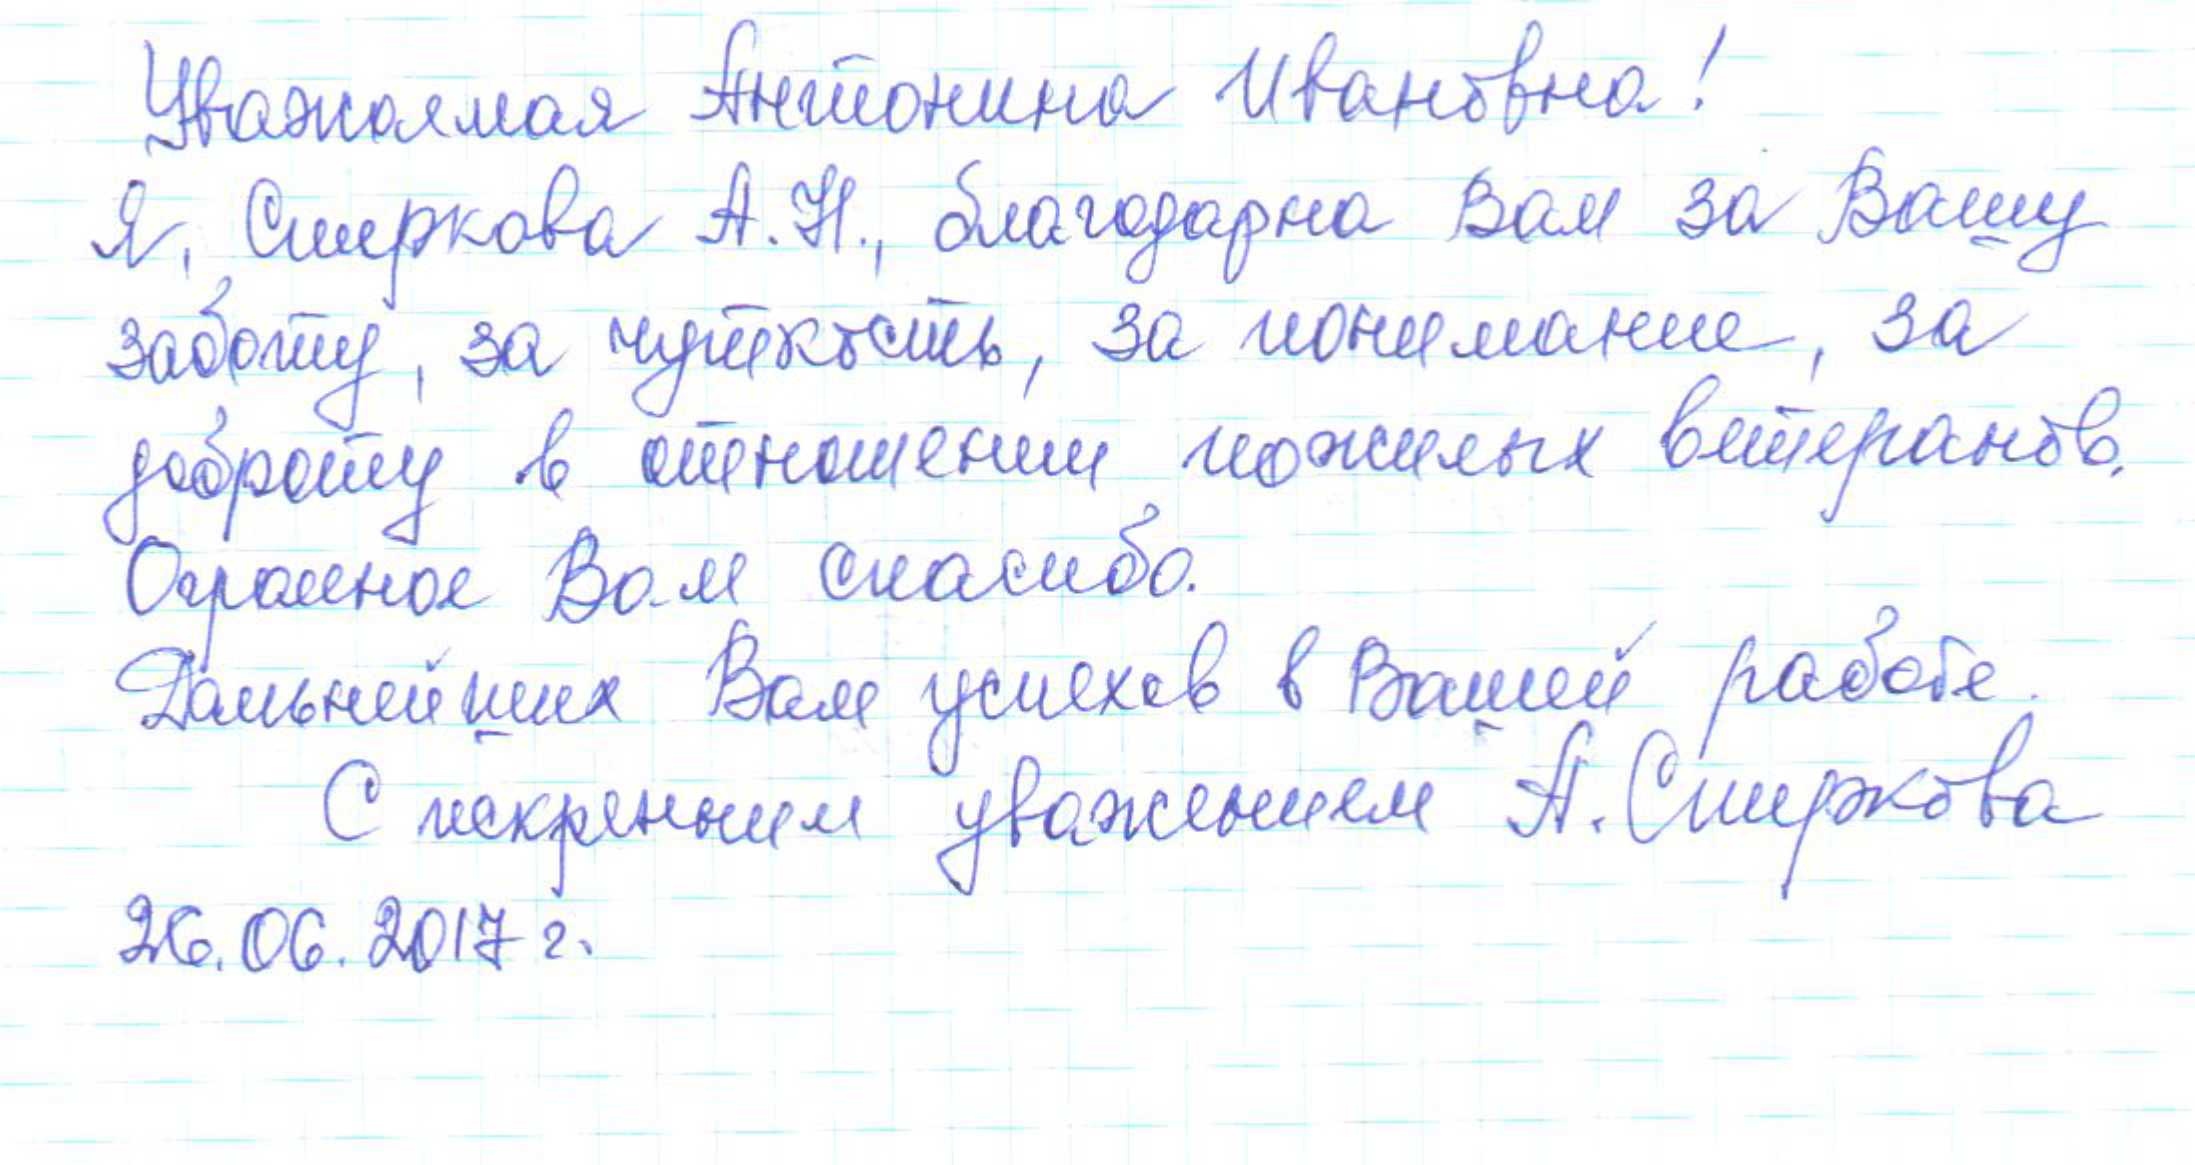 Уважаемая Антонина Ивановна!
Я, Смиркова А.Н., благодарна Вам за Вашу
заботу, за чуткость, за понимание, за
доброту в отношении пожилых ветеранов.
Огромное Вам спасибо.
Дальнейших Вам успехов в Вашей работе.
С искренним уважением А. Смиркова
26.06.2017 г.